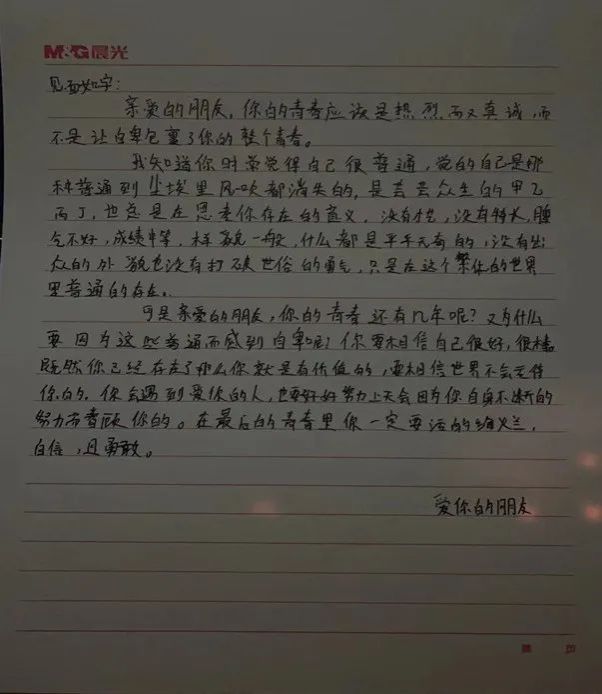 M&G晨光
见面如字:
亲爱的朋友,你的青春应该是热烈而又真诚,而
不是让自卑包裹了你的整个青春。
我知道你时常觉得自己很普通,觉的自己是那
种普通到尘埃里风吹都消失的,是芸芸众生的甲乙
丙丁,也总是在思考你存在的意义,没有性,没有特长,脾
气不好,成绩中等,样貌一般,什么都是平平无奇的,没有出
众的外貌也没有打破世俗的勇气,只是在这个繁华的世界
里普通的存在。
可是亲爱的朋友,你的青春还有几年呢?又为什么
要因为这些普通而感到自卑呢?你要相信自己很好,很棒
既然你已经存在了那么你就是有价值的,要相信世界不会亏待
你的,你会遇到爱你的人,也要好好努力上天会因为你自身不断的
努力而眷顾你的。在最后的青春里你一定要活的绚烂,
自信,且勇敢。
爱你的朋友
第 页